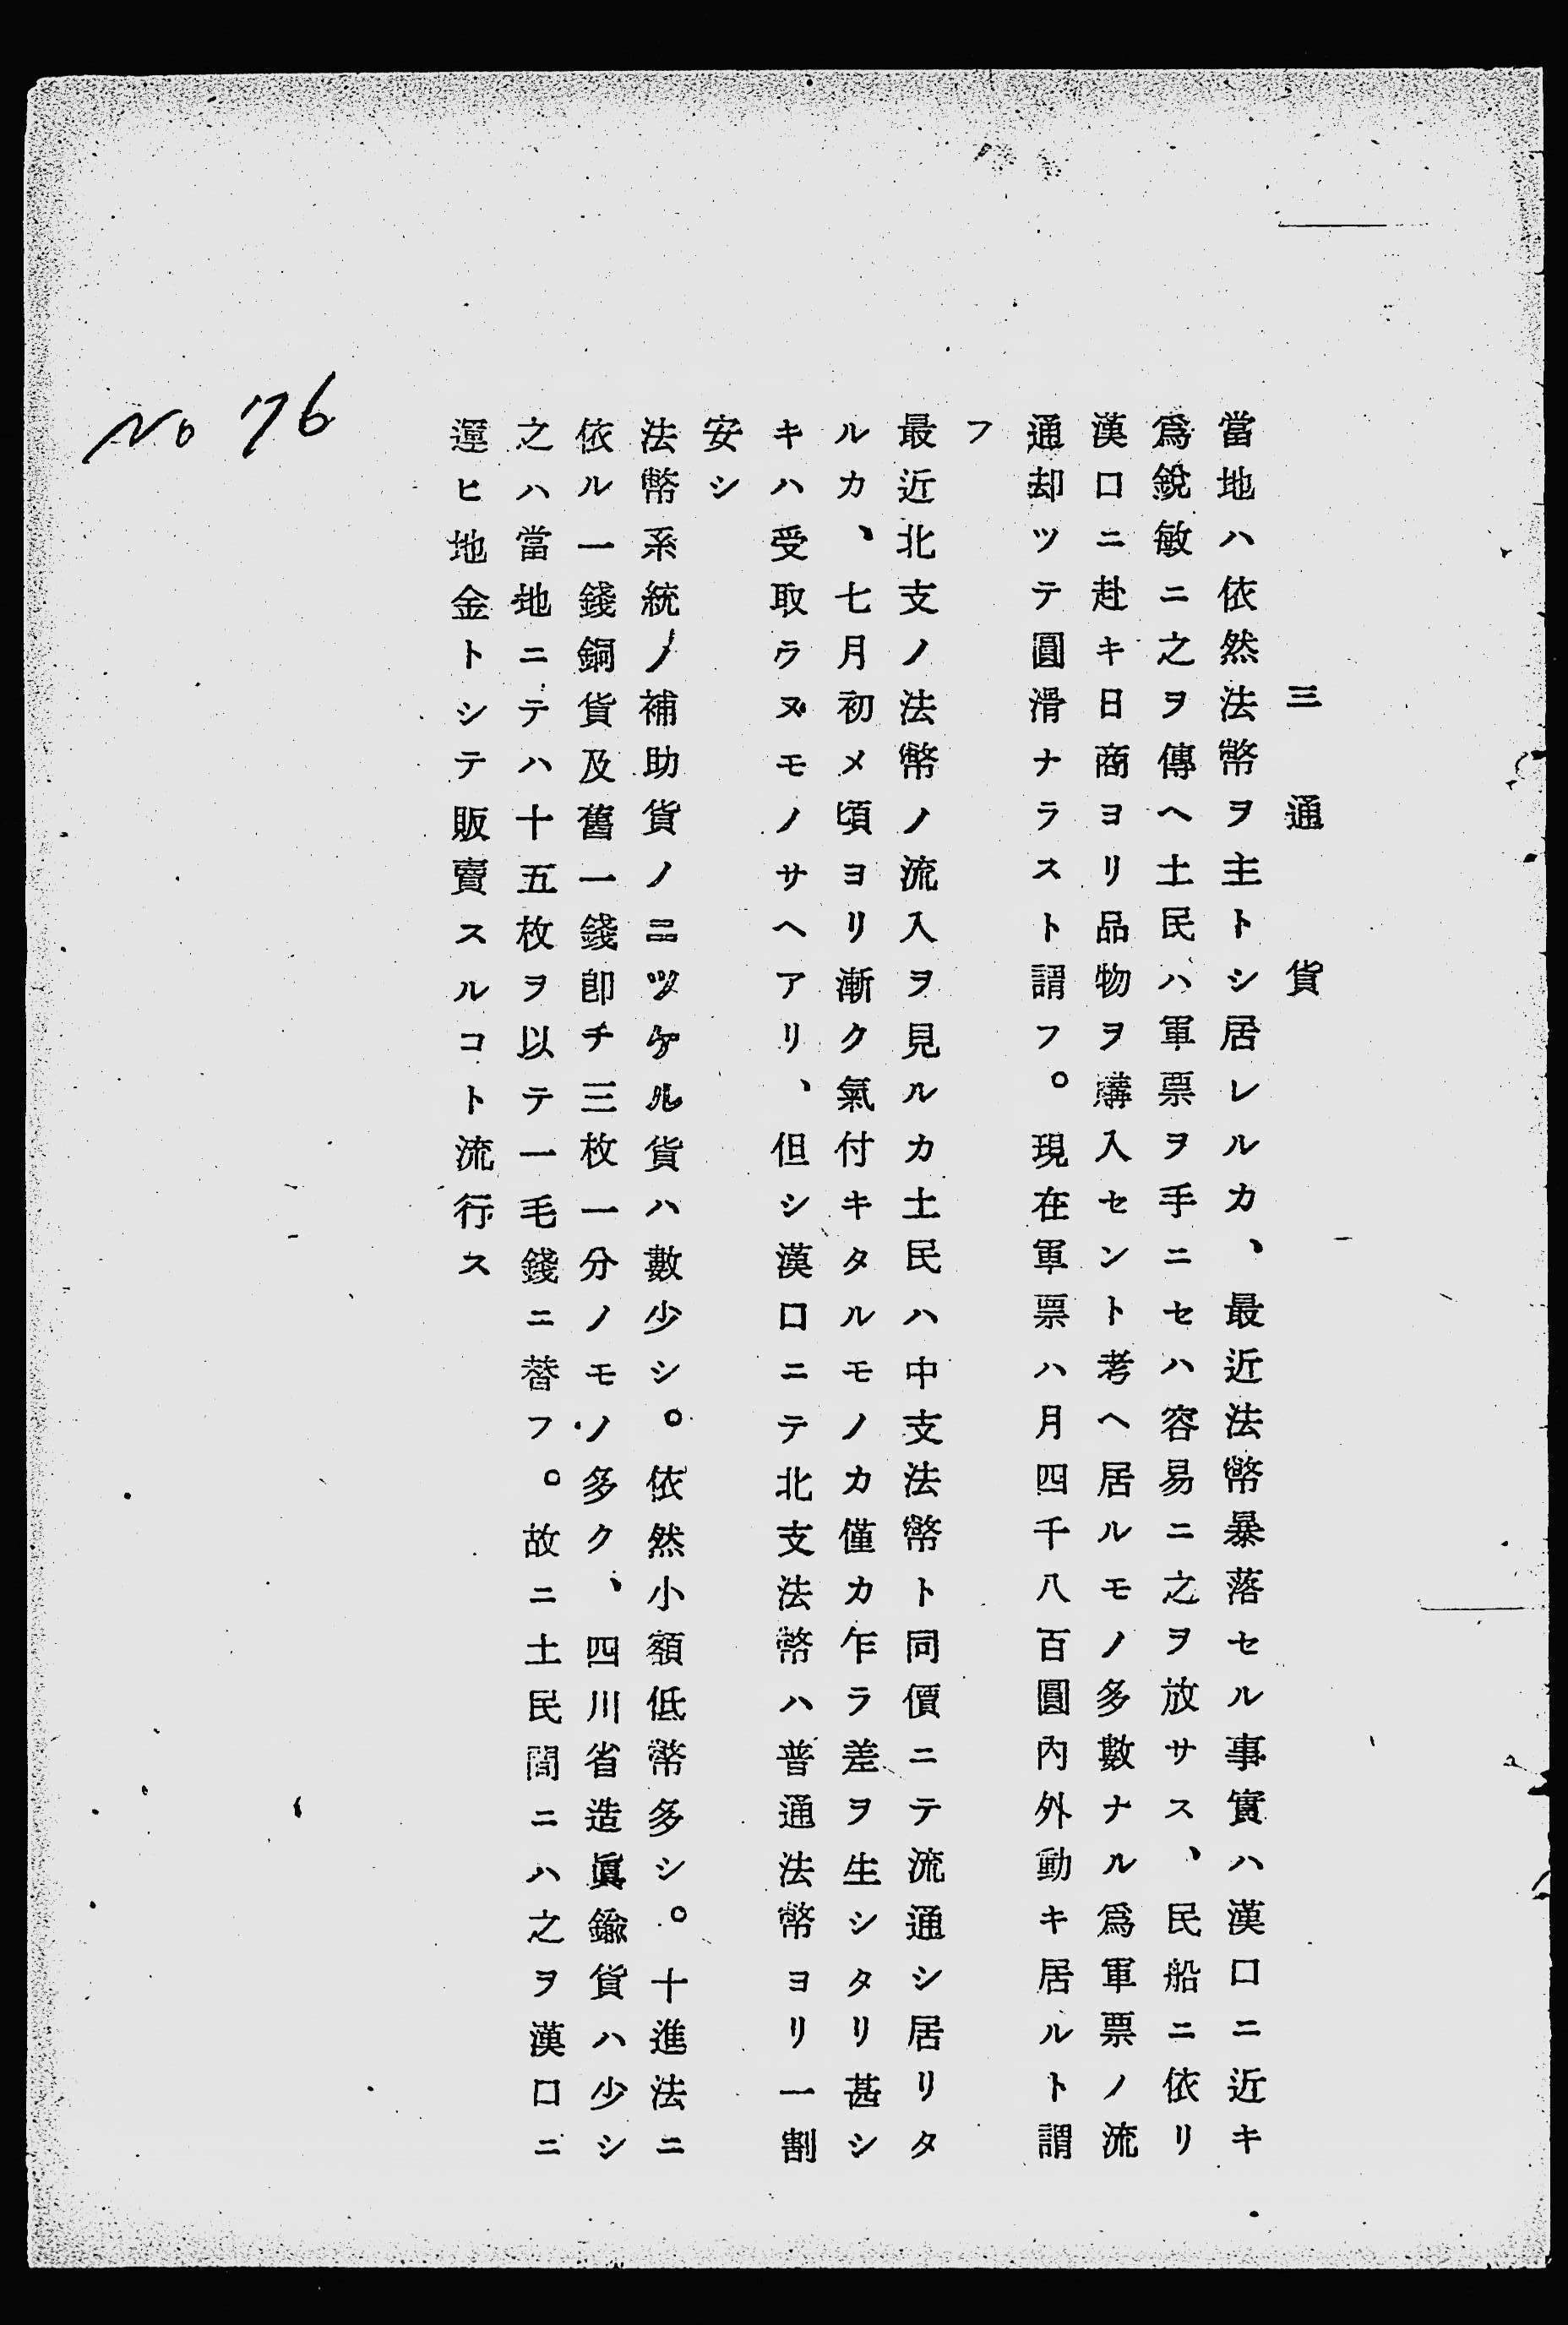 三通貨
當地ハ依然法幣ヲ主トシ居レルカ、最近法幣暴落セル事實ハ漢口ニ近キ
爲銳敏ニ之ヲ傳ヘ土民ハ軍票ヲ手ニセハ容易ニ之ヲ放サス、民船ニ依リ
漢口ニ赴キ日商ヨリ品物ヲ購入セント考ヘ居ルモノ多數ナル爲軍票ノ流
通却ツテ圓滑ナラスト謂フ。現在軍票ハ月四千八百圓內外動キ居ルト謂
フ
最近北支ノ法幣ノ流入ヲ見ルカ土民ハ中支法幣ト同價ニテ流通シ居リタ
ルカ、七月初メ頃ヨリ漸ク氣付キタルモノカ僅カ乍ラ差ヲ生シタリ甚シ
キハ受取ラヌモノサヘアリ、但シ漢口ニテ北支法幣ハ普通法幣ヨリ一割
安シ
法幣系統ノ補助貨ノニツケル貨ハ數少シ。依然小額低幣多シ。十進法ニ
依ル一錢銅貨及舊一錢卽チ三枚一分ノモノ多ク、四川省造眞鍮貨ハ少シ
之ハ當地ニテハ十五枚ヲ以テ一毛錢ニ替フ。故ニ土民間ニハ之ヲ漢口ニ
運ヒ地金トシテ販賣スルコト流行ス
No 76